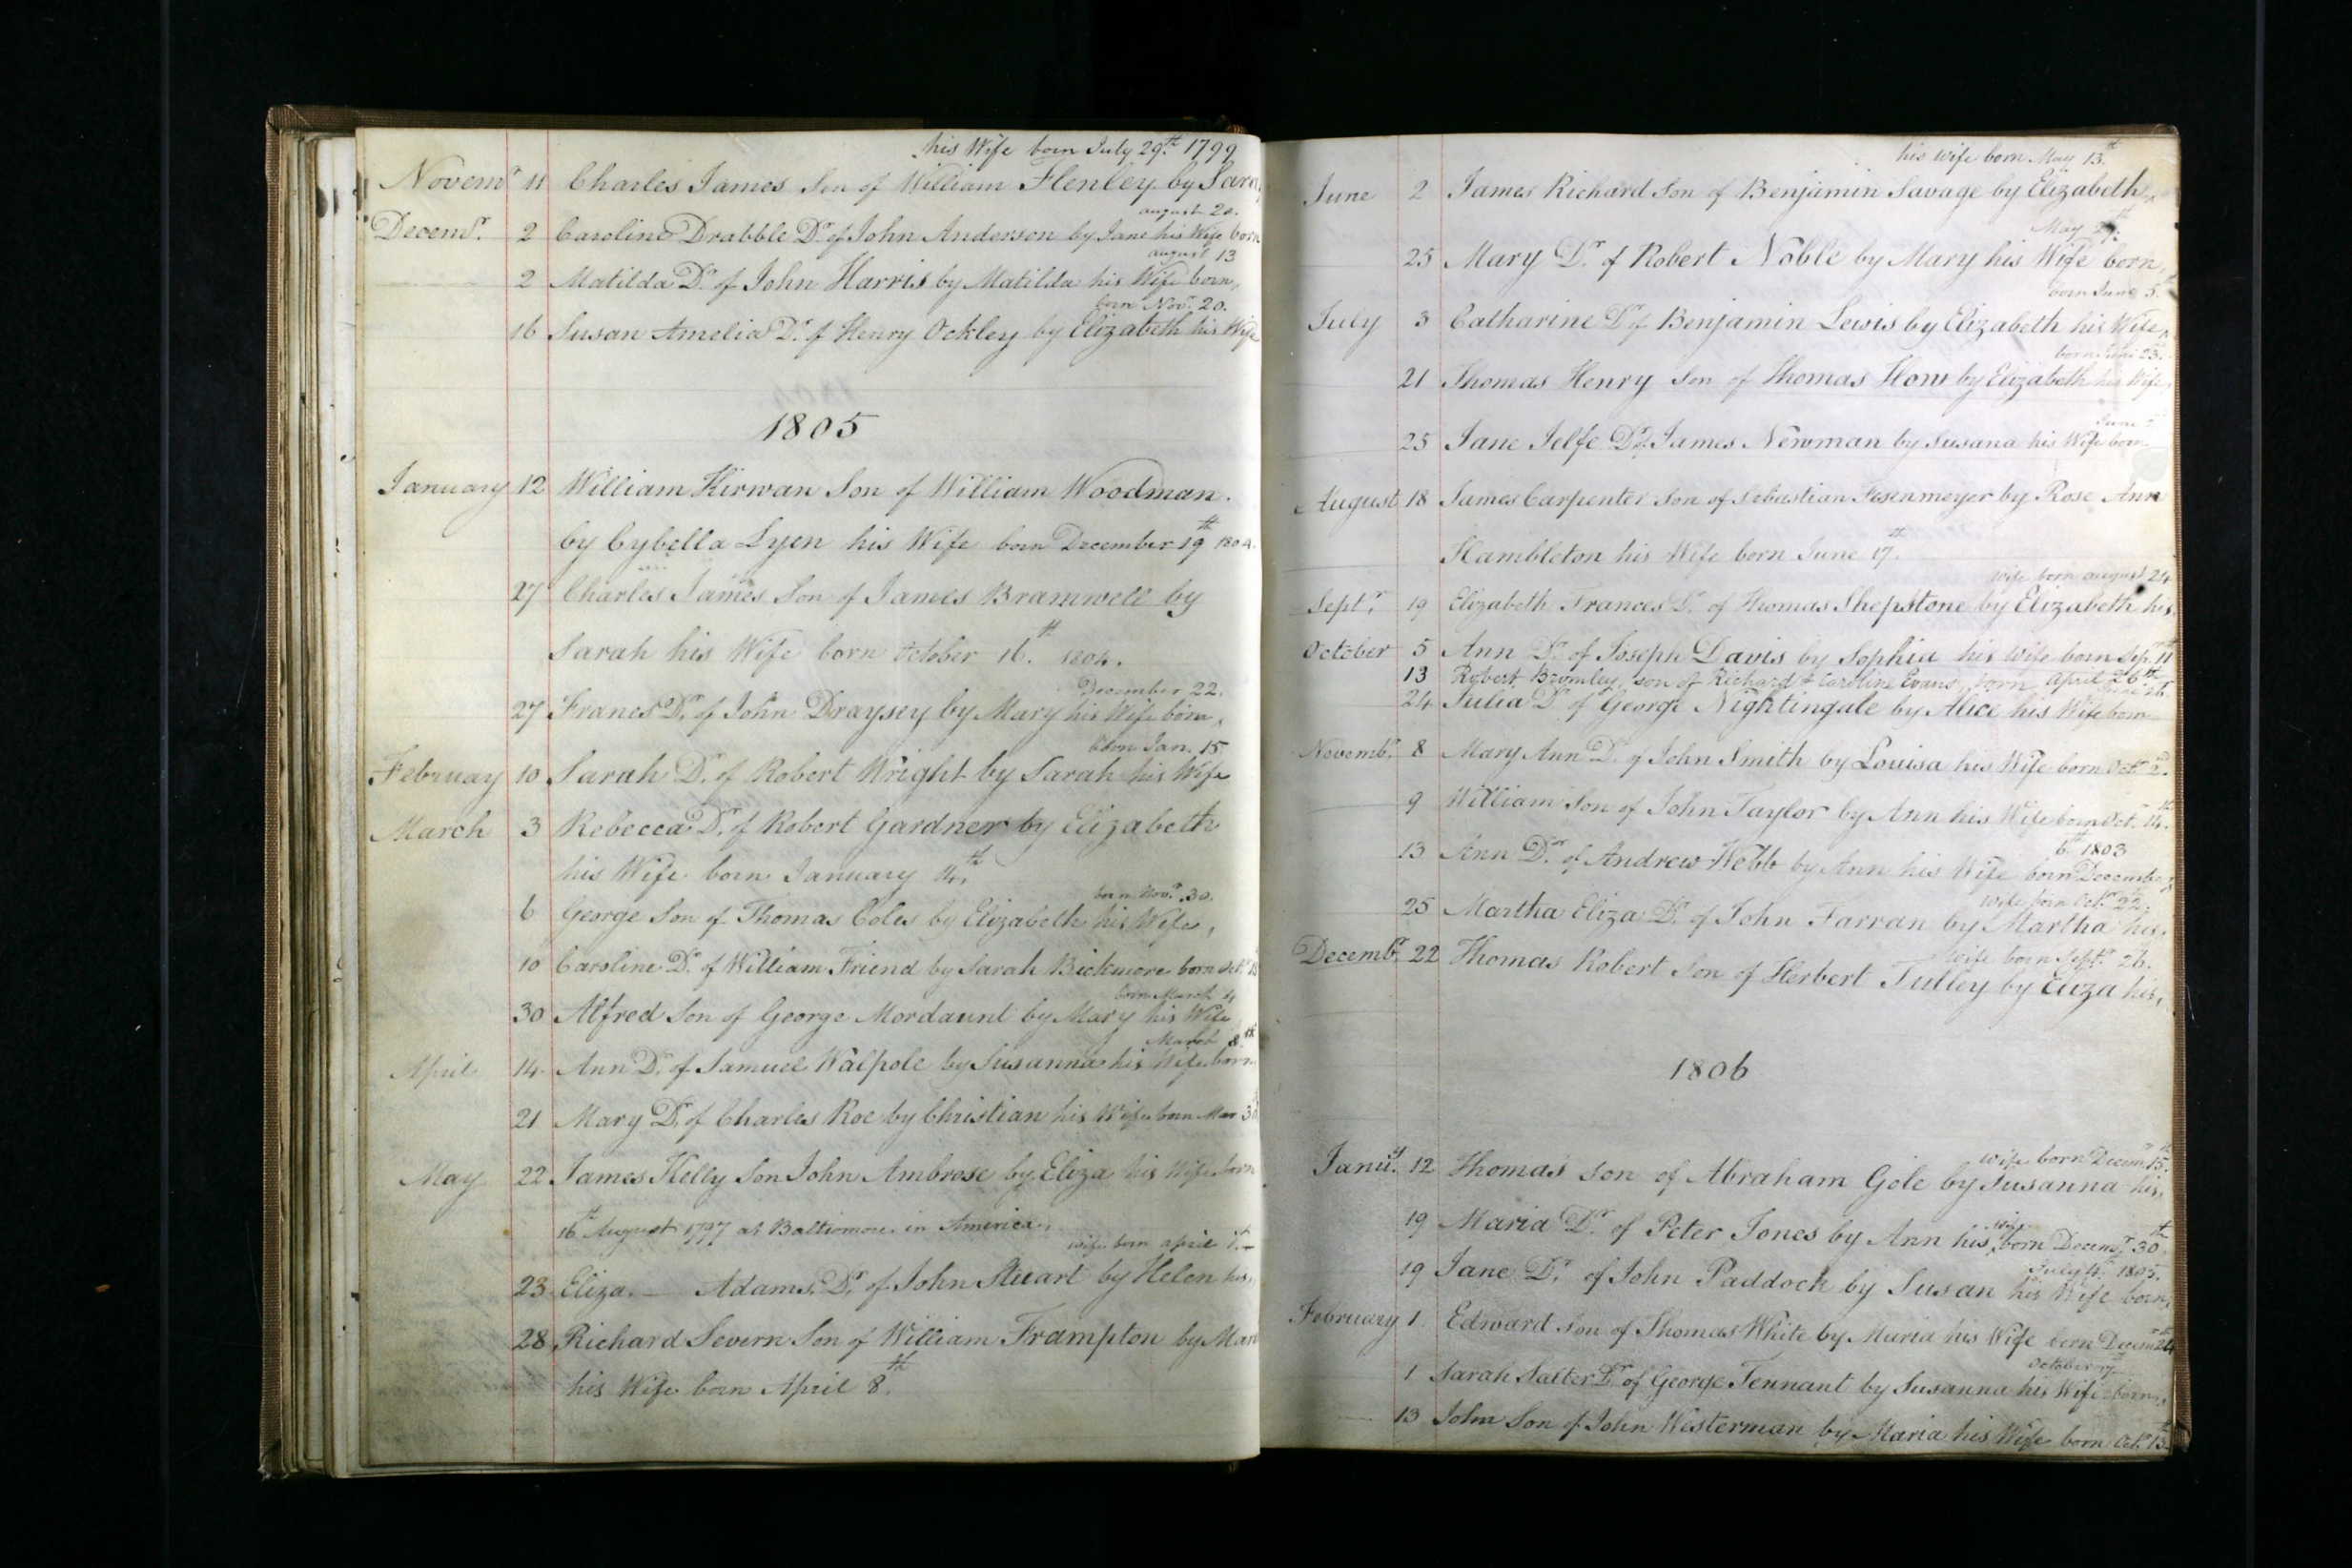 his Wife born July 29th 1799
Novemr 11 Charles James Son of William Flenley by Sara
august 20.
Decemr. 2 Caroline Drabble Dr of John Anderson by Jane his Wife born
august 13
2 Matilda Dr. of John Harris by Matilda his Wife born,
born Novr. 20.
16 Susan Amelia Dr. of Henry Ockley by Elizabeth his Wife
1805
January 12 William Kirwan Son of William Woodman.
by Cybella Lyen his Wife born December 19th 1804.
27 Charles James Son of James Bramwell by
Sarah his Wife born October 16th. 1804.
December 22.
27 Frances Dr. of John Draysey by Mary his Wife born,
born Jan. 15
February 10 Sarah Dr. of Robert Wright by Sarah his Wife
March 3 Rebecca Dr. of Robert Gardner by Elizabeth
his Wife born January 14th.
born Novr. 30.
6 George Son of Thomas Coles by Elizabeth his Wife,
10 Caroline Dr. of William Friend by Sarah Bickmore born
born March 4
30 Alfred Son of George Mordaunt by Mary his Wife
March 8th
April 14 Ann Dr. of Samuel Walpole by Susanna his Wife born
21 Mary Dr. of Charles Roe by Christian his Wife born Mar
May 22 James Kelly Son John Ambrose by Eliza his Wife born
16th August 1797 at Baltimore in America.
wife born april
23 Eliza. — Adams. Dr. of John Stuart by Helen his,
28 Richard Severn Son of William Frampton by Mar
his Wife born April 8th.
his wife born May 13th
June 2 James Richard Son of Benjamin Savage by Elizabeth,
May
25 Mary Dr. of Robert Noble by Mary his Wife born,
born June 5.
July 3 Catharine Dr of Benjamin Lewis by Elizabeth his Wife,
born June 23.
21 Thomas Henry Son of Thomas How by Elizabeth his Wife,
June
25 Jane Jelfe Dr of James Newman by Susana his Wife born
August 18 James Carpenter Son of Sebastian Fesenmeyer by Rose Ann
Hambleton his Wife born June 17th.
wife born august 24
Septr. 19 Elizabeth Frances Dr. of Thomas Shepstone by Elizabeth his,
October 5 Ann Dr. of Joseph Davis by Sophia his Wife born Sep. 11
13 Robert Bromley, son of Richard & Caroline Evans, born April 26th
24 Julia Dr of George Nightingale by Alice his Wife born
Novembr. 8 Mary Ann Dr. of John Smith by Louisa his Wife born Octr. 2.
9 William Son of John Taylor by Ann his Wife born Oct. 14th.
6th. 1803
13 Ann Dr. of Andrew Webb by Ann his Wife born December,
wife born Octr. 22.
25 Martha Eliza Dr. of John Farran by Martha his,
wife born Septr. 26.
Decembr. 22 Thomas Robert Son of Herbert Tulley by Eliza his,
1806
wife born Decemr 15th.
Januy. 12 Thomas Son of Abraham Gole by Susanna his,
wife
19 Maria Dr. of Peter Jones by Ann his, born Decemr. 30th
July 4th. 1805.
19 Jane Dr. of John Paddock by Susan his Wife born,
February 1 Edward Son of Thomas White by Maria his Wife born Decemr 24
October 17
1 Sarah Salter Dr. of George Tennant by Susanna his Wife born,
13 John Son of John Westerman by Maria his Wife born Octr. 13th